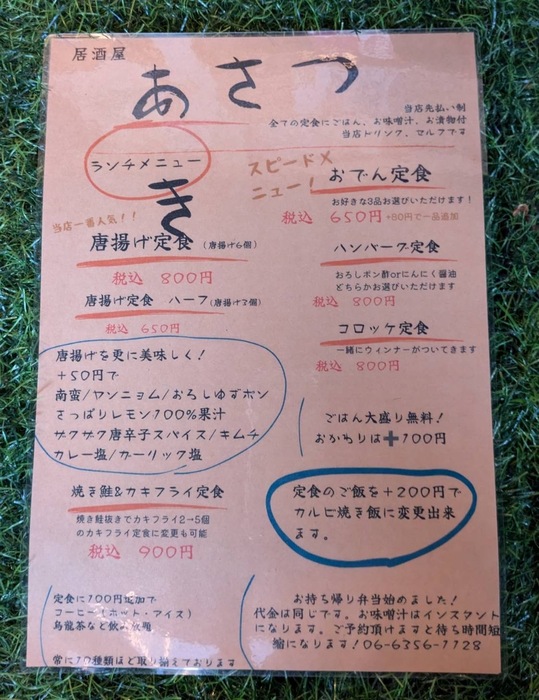 居酒屋
あさつき
当店先払い制
全ての定食にごはん、お味噌汁、お漬物付
当店ドリンク、セルフです
ランチメニュー
スピードメ
ニュー!
おでん定食
お好きな3品お選びいただけます!
税込 650円+80円で一品追加
当店一番人気!!
唐揚げ定食 (唐揚げ6個)
税込 800円
ハンバーグ定食
おろしポン酢orにんにく醤油
どちらかお選びいただけます
税込 800円
唐揚げ定食 ハーフ(唐揚げ2個)
税込 650円
コロッケ定食
一緒にウィンナーがついてきます
税込 800円
唐揚げを更に美味しく!
+50円で
南蛮/ヤンニョム/おろしゆずポン
さっぱりレモン100%果汁
ザクザク唐辛子スパイス/キムチ
カレー塩/ガーリック塩
ごはん大盛り無料!
おかわりは➕100円
焼き鮭&カキフライ定食
焼き鮭抜きでカキフライ2→5個
のカキフライ定食に変更も可能
税込 900円
定食のご飯を+200円で
カルビ焼き飯に変更出来
ます。
定食に100円追加で
コーヒー(ホット・アイス)
烏龍茶など飲み放題
常に10種類ほど取り揃えております
お持ち帰り弁当始めました!
代金は同じです。お味噌汁はインスタント
になります。ご予約頂けますと待ち時間短
縮になります!06-6356-1128